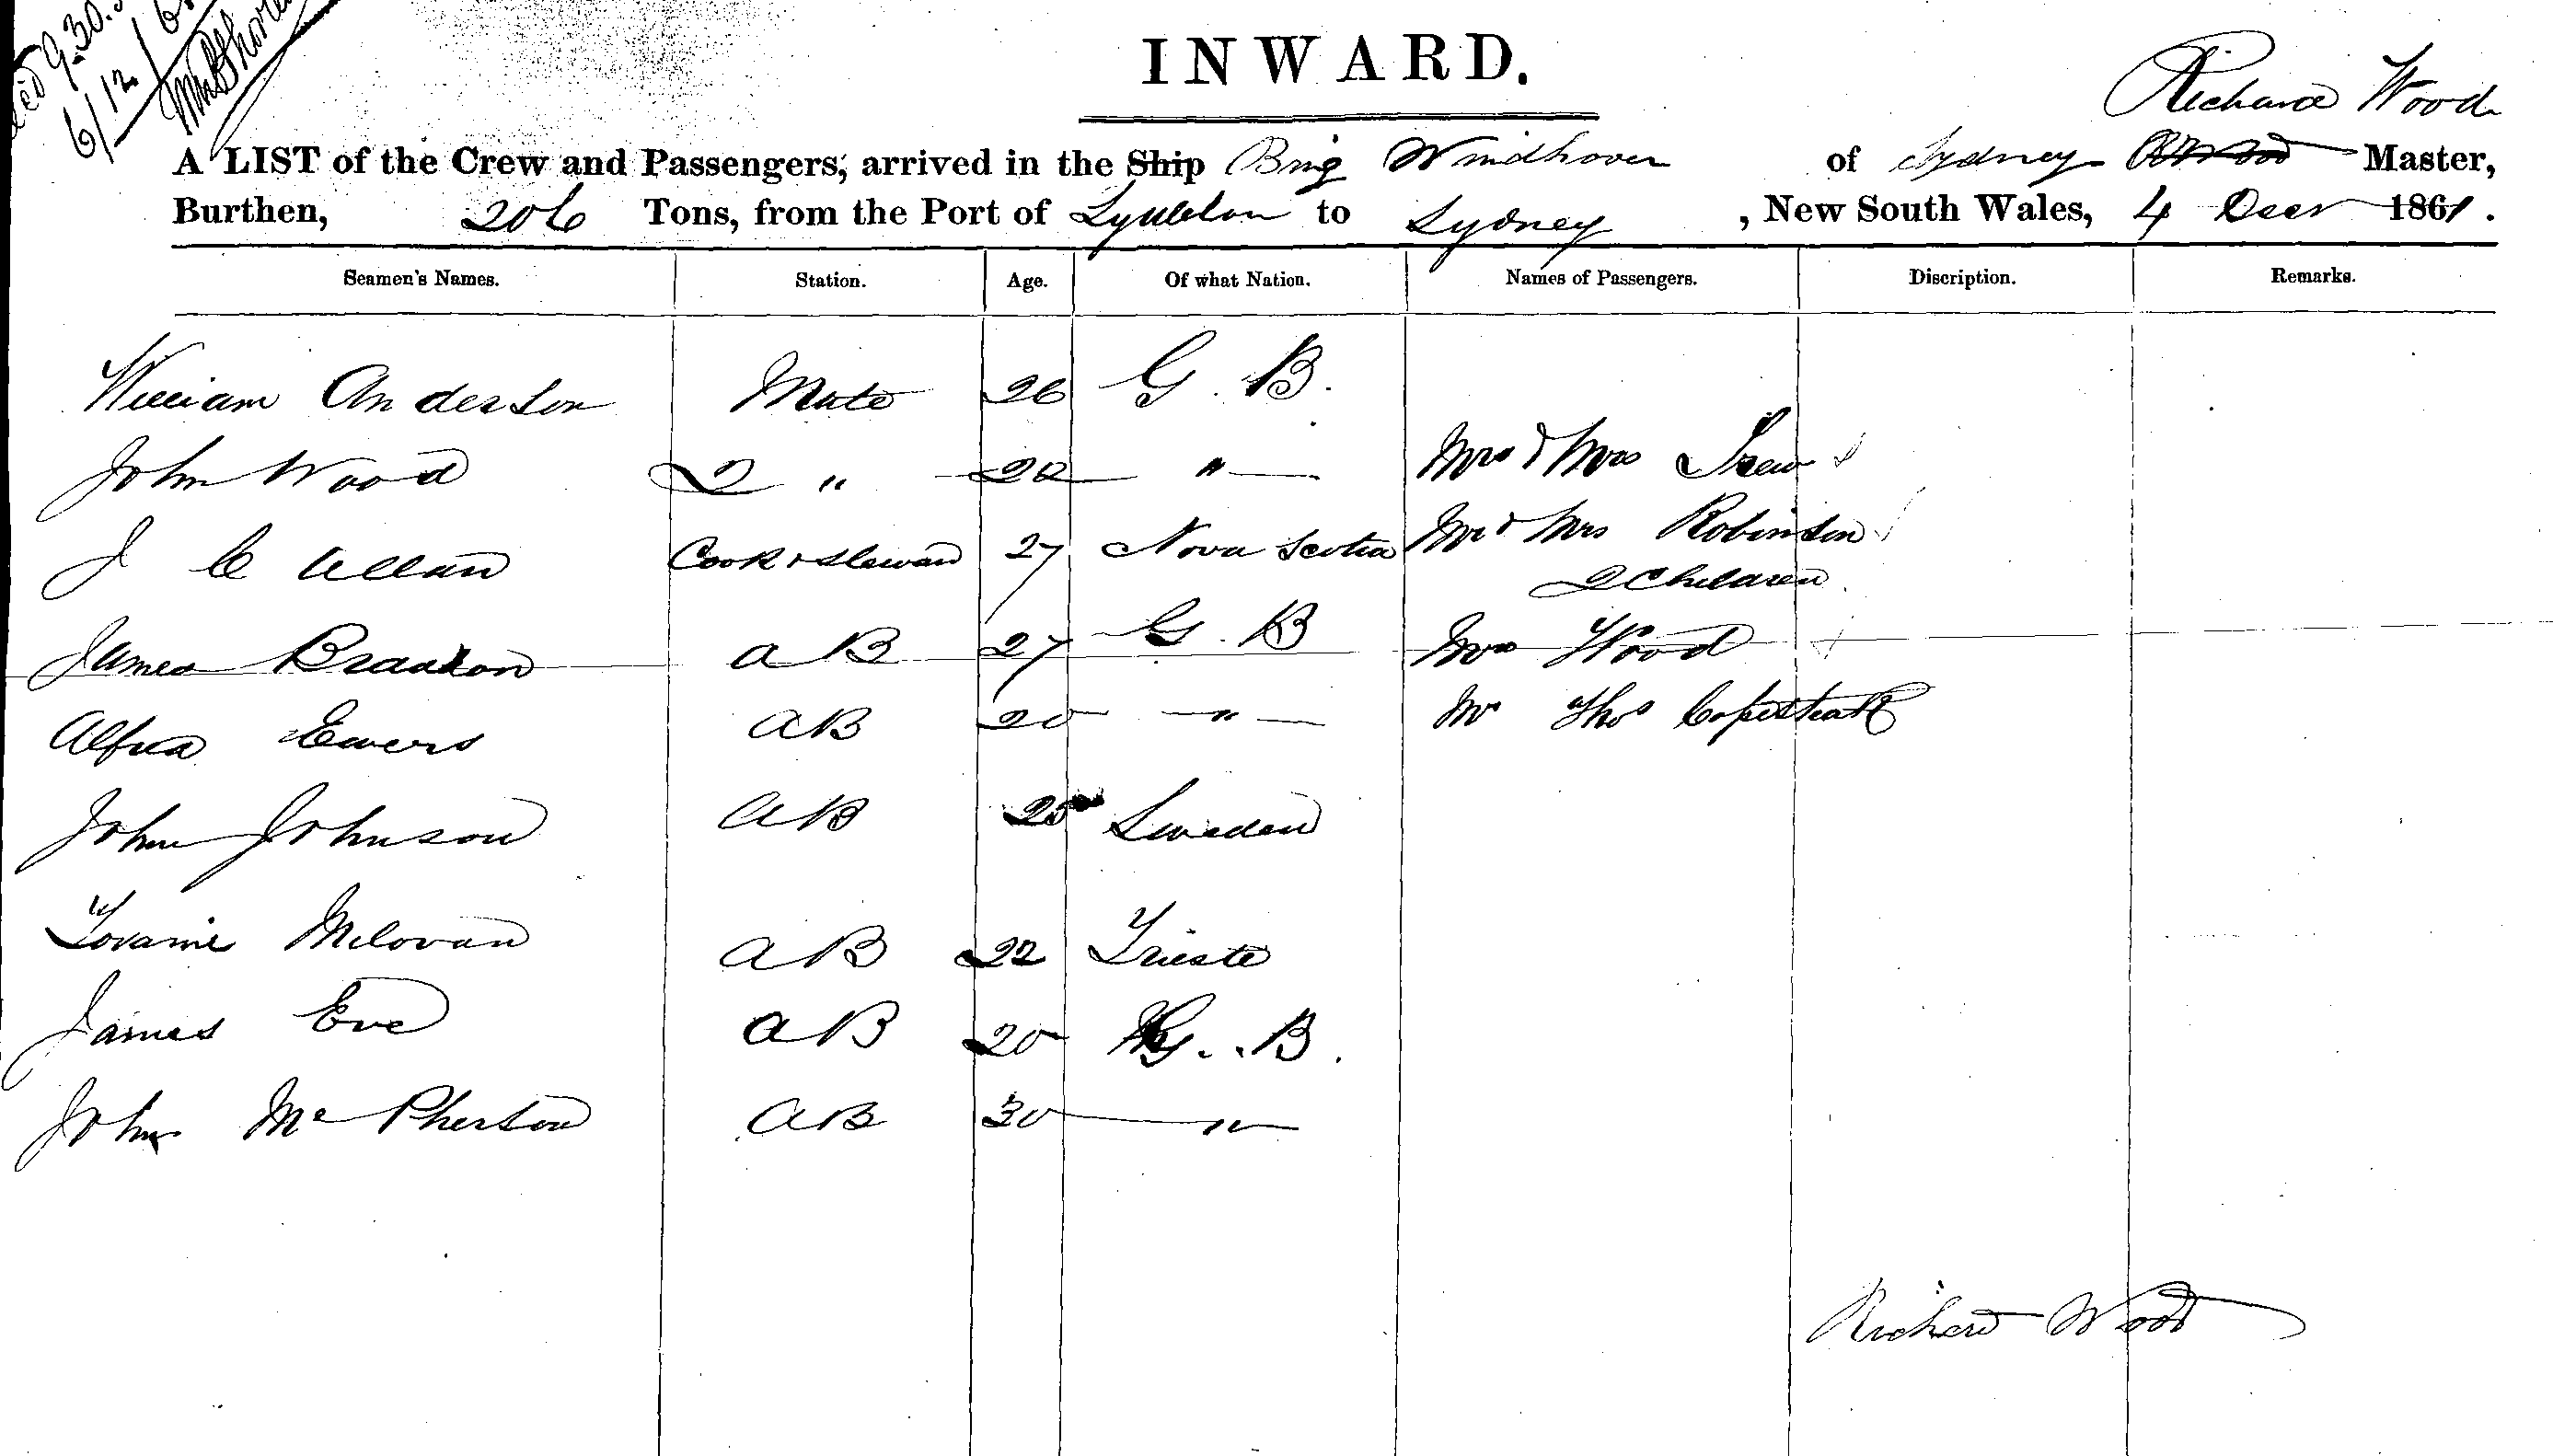 9.30
6/12/6
INWARD.
Richard Wood
A LIST of the Crew and Passengers, arrived in the Ship Brig Windhover of Sydney R Wood Master,
Burthen, 206 Tons, from the Port of Lyttelton to Sydney, New South Wales, 4 Decr 1861.
Seamen's Names. Station. Age. Of what Nation. Names of Passengers. Discription. Remarks.
William Anderson Mate 26 G. B.
John Wood 2 " 22 " Mr & Mrs
J C Allan Cook & Steward 27 Nova Scotia Mr & Mrs Robinson
2 Children
James AB 27 G. B Mrs Wood
Alfred Ewers AB 20 " Mr Thos
John Johnson AB 25 Sweden
Milovan AB 22 Trieste
James Eve AB 20 G. B.
John McPherson AB 30 "
Richard Wood